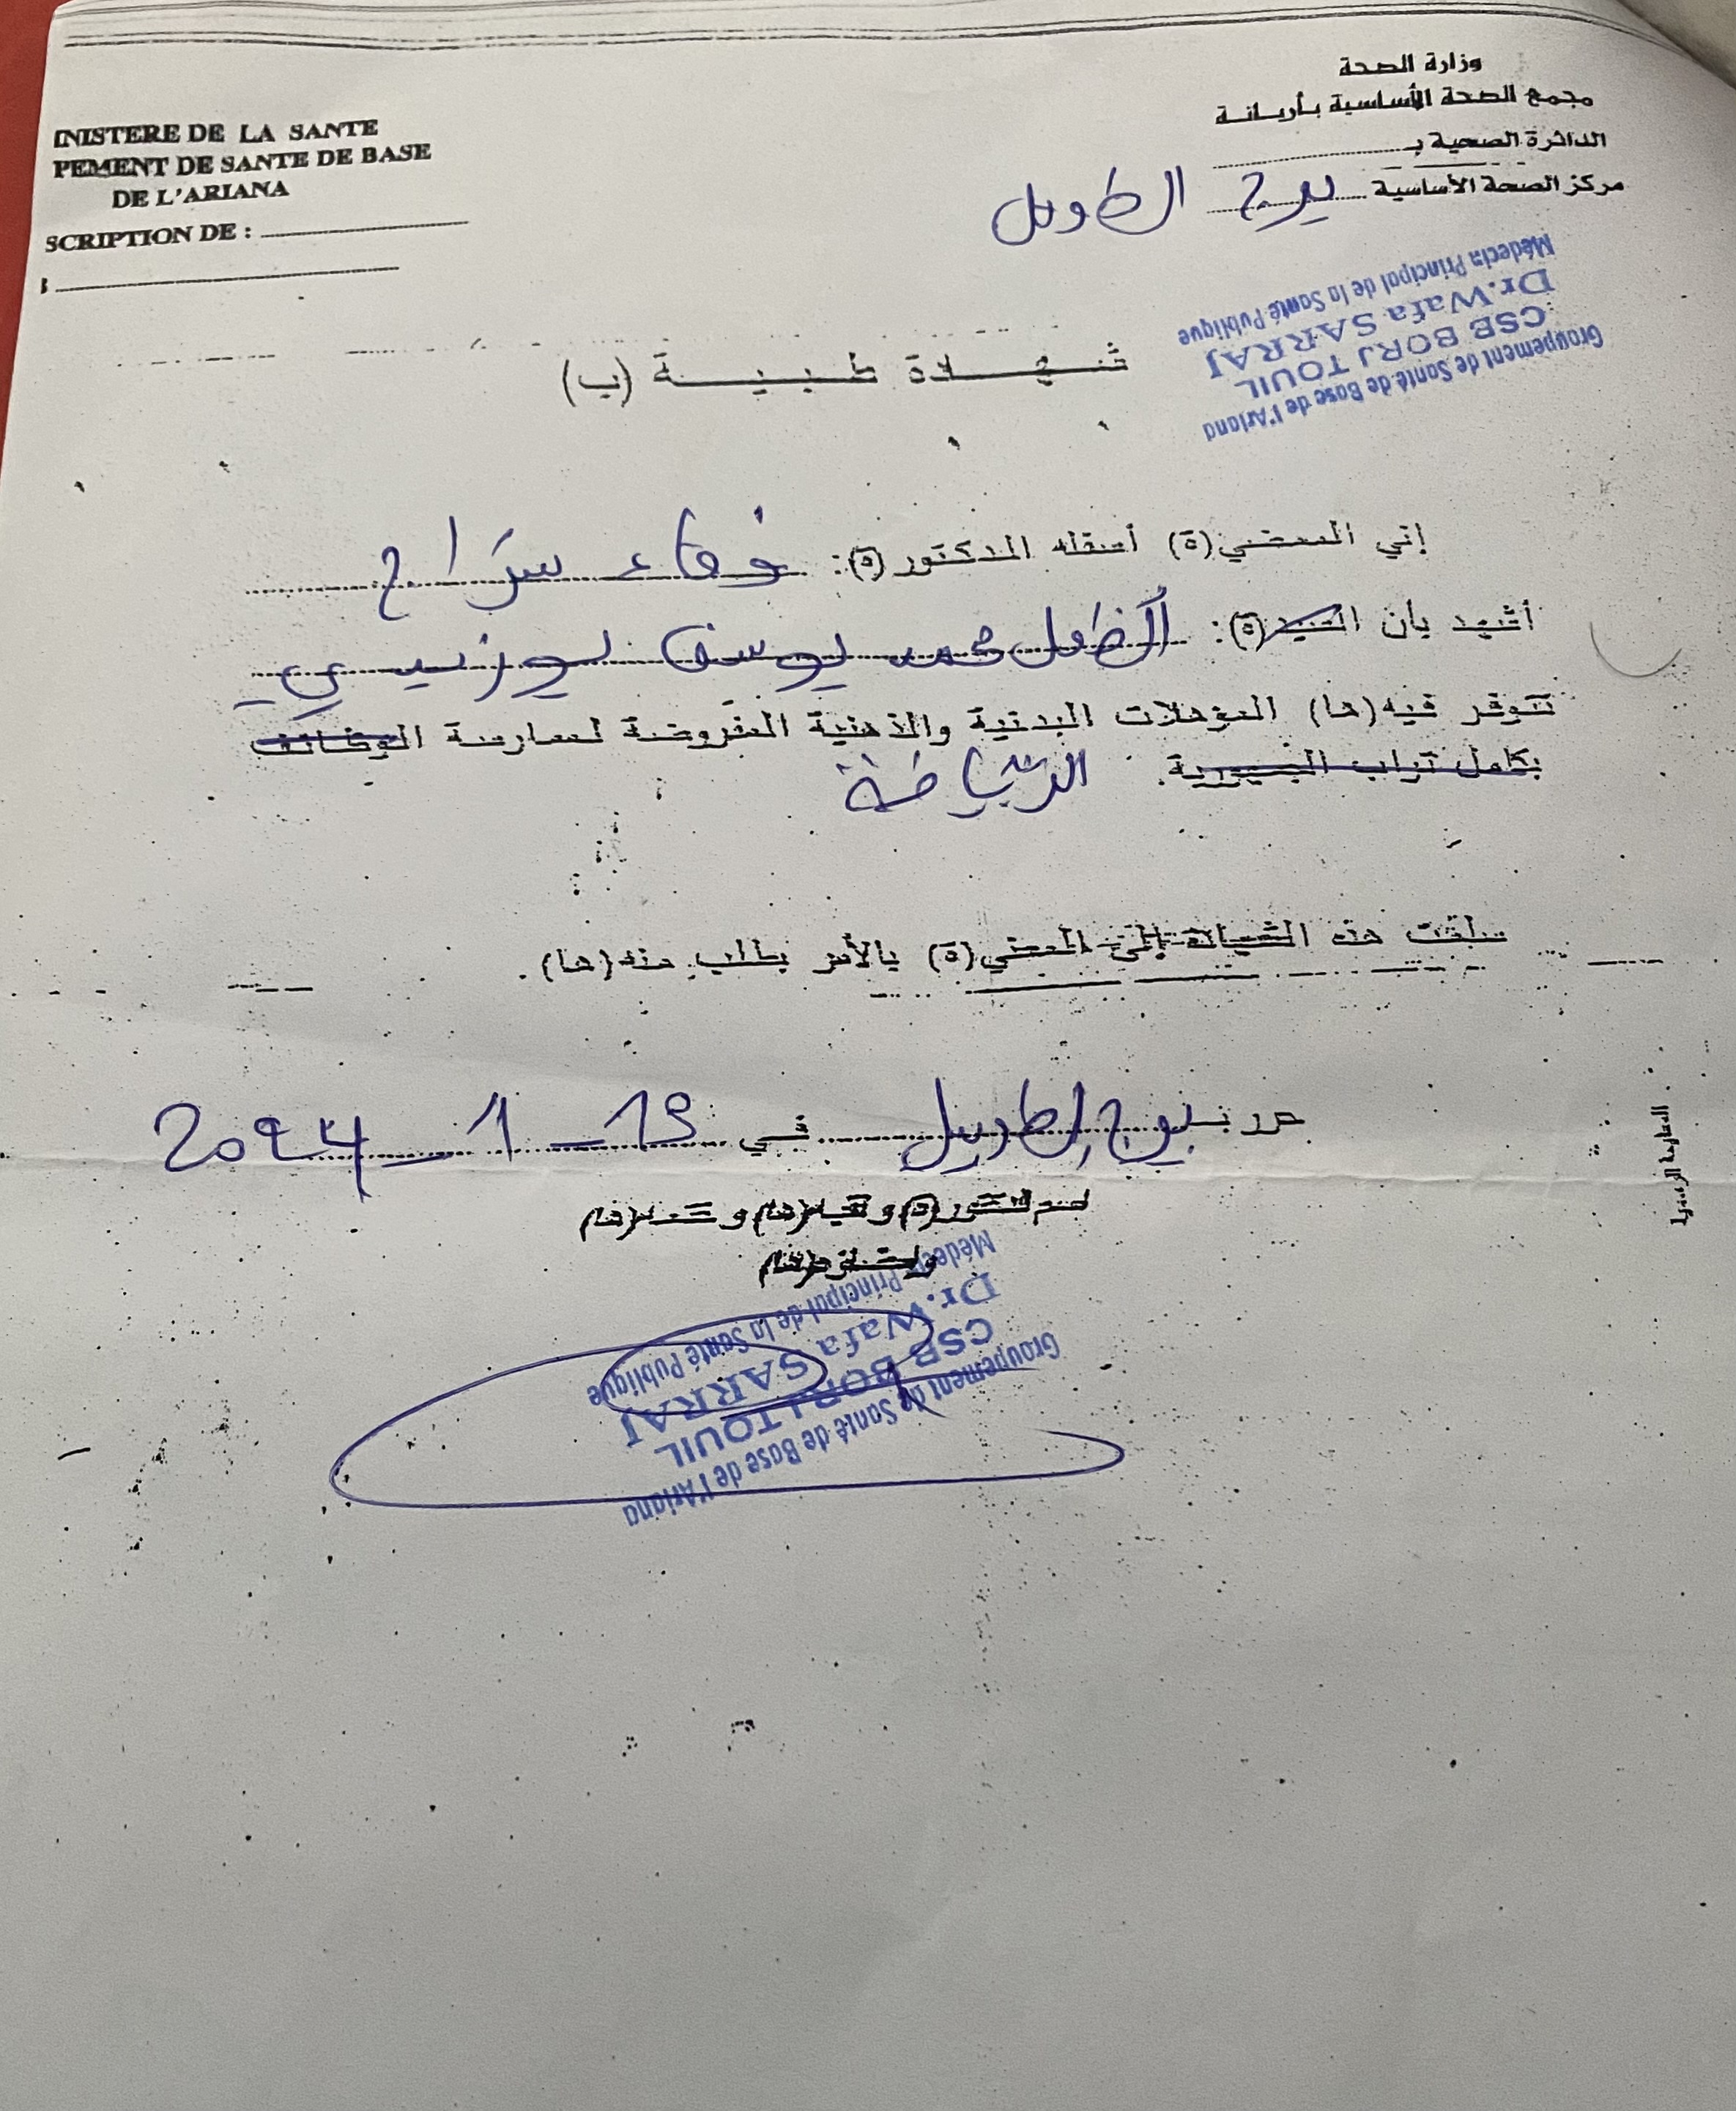 وزارة الصحة
مجمع الصحة الأساسية بأريانة
الدائرة الصحية بـ
مركز الصحة الأساسية برج الطويل
INISTERE DE LA SANTE
PEMENT DE SANTE DE BASE
DE L'ARIANA
SCRIPTION DE :
Groupement de Santé de Base de l'Ariana
CSB BORJ TOUIL
Dr. Wafa SARRAJ
Médecin Principal de la Santé Publique
شهادة طبية (ب)
إني الممضي(ة) أسفله الدكتور(ة): وفاء سرّاج
أشهد بأن السيد(ة): الطفل محمد يوسف
تتوفر فيه(ها) المؤهلات البدنية والذهنية المفروضة لممارسة الوظائف
بكامل تراب الجمهورية. الرّياضة
سلمت هذه الشهادة إلى المعني(ة) بالأمر بطلب منه(ها).
حرر ببرج الطويل في 19-1-2024
Groupement de Santé de Base de l'Ariana
CSB BORJ TOUIL
Dr. Wafa SARRAJ
Médecin Principal de la Santé Publique